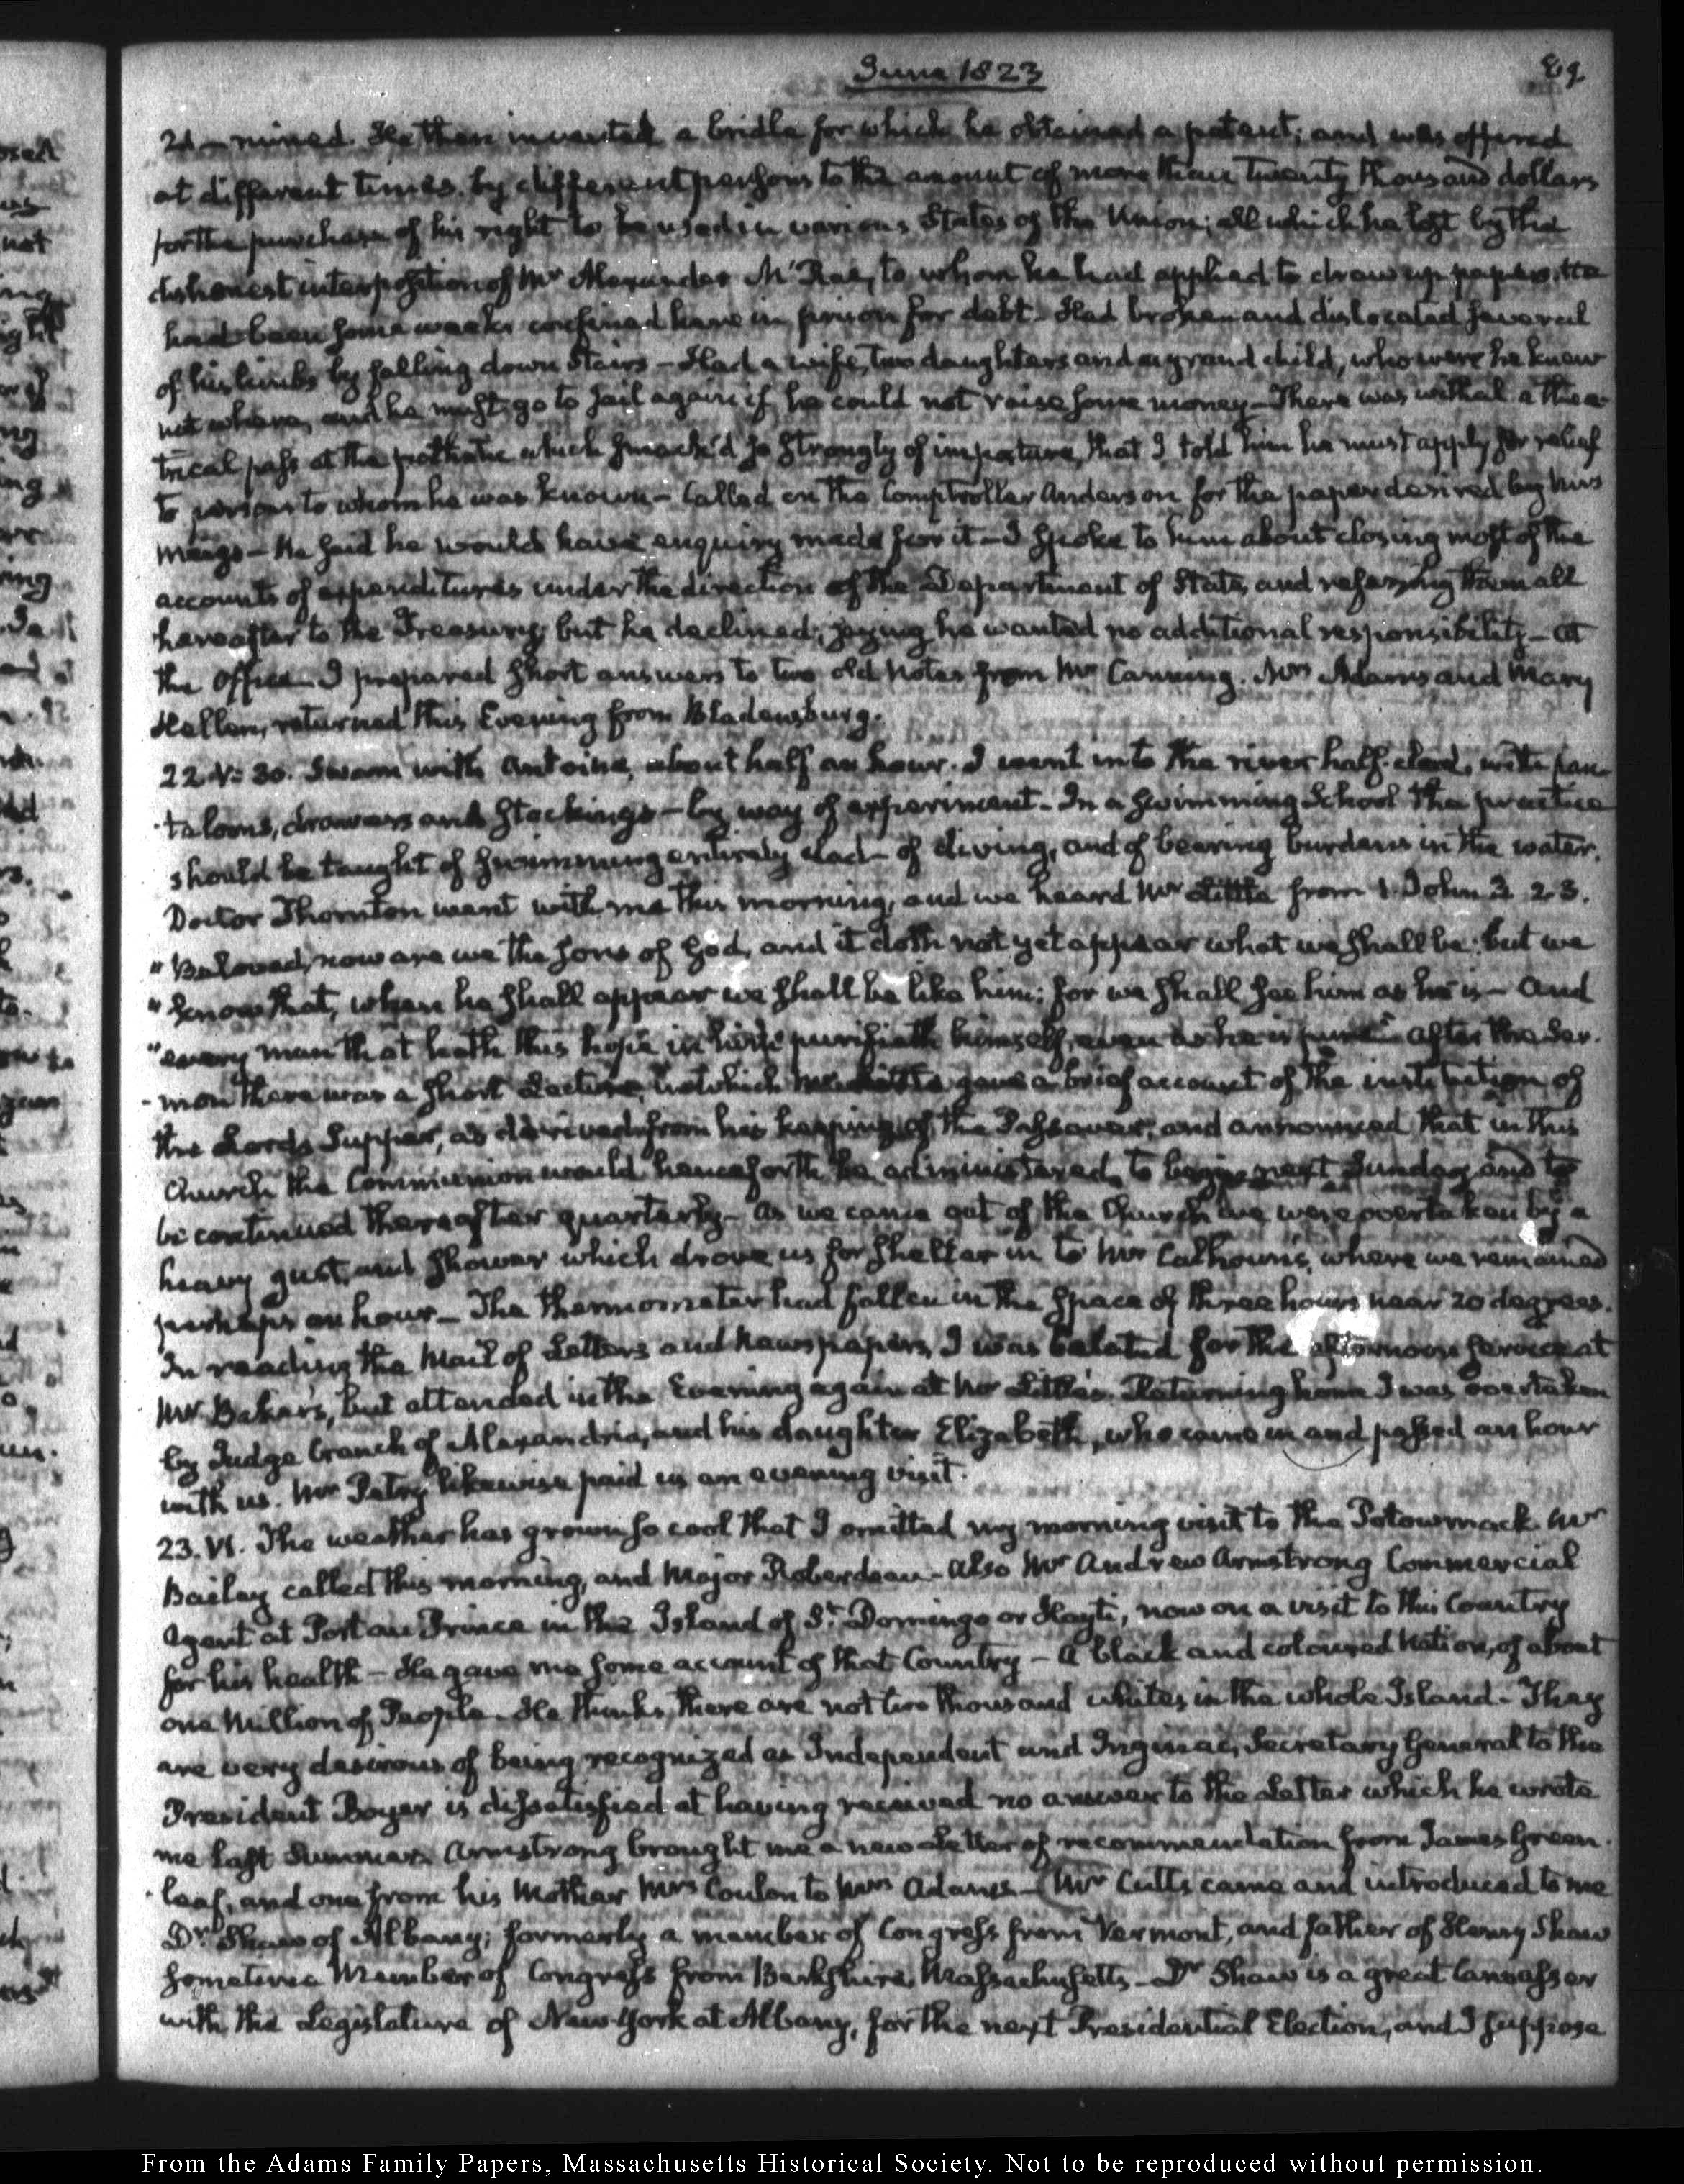 June 1823
89
21 — mined. He then invented a bridle for which he obtained a patent; and was offered
at different times by different persons to the amount of more than twenty thousand dollars
for the purchase of his right to be used in various States of the Union; all which he lost by the
dishonest interposition of Mr Alexander McRae, to whom he had applied to draw up papers. He
had been some weeks confined here in prison for debt. Had broken and dislocated several
of his limbs by falling down stairs — Had a wife, two daughters and a grand child, who were he knew
not where, and he must go to jail again if he could not raise some money — There was withal a thea-
trical pass at the pathetic which smack'd so strongly of imposture, that I told him he must apply for relief
to persons to whom he was known — Called on the Comptroller Anderson for the paper desired by Mrs
Meigs — He said he would have enquiry made for it — I spoke to him about closing most of the
accounts of expenditures under the direction of the Department of State, and referring them all
hereafter to the Treasury; but he declined; saying he wanted no additional responsibility — At
the Office I prepared short answers to two old Notes from Mr Canning. Mrs Adams and Mary
Hellen, returned this Evening from Bladensburg.
22. V: 30. Swam with Antoine, about half an hour. I went into the river half-clad, with pan-
taloons, drawers and stockings — by way of experiment. In a swimming School the practice
should be taught of swimming entirely clad — of diving, and of bearing burdens in the water.
Doctor Thornton went with me this morning, and we heard Mr Little from 1. John 3. 2.3.
"Beloved, now are we the Sons of God, and it doth not yet appear what we shall be: but we
"know that, when he shall appear we shall be like him; for we shall see him as he is — And
"every man that hath this hope in him purifieth himself, even as he is pure" After the Ser-
-mon there was a short Lecture, in which Mr Little gave a brief account of the institution of
the Lord's Supper, as derived from his keeping of the Passover; and announced that in this
Church the Communion would henceforth be administered, to begin next Sunday and to
be continued thereafter quarterly — As we came out of the Church we were overtaken by a
heavy gust, and shower which drove us for shelter in to Mr Calhoun's, where we remained
perhaps an hour — The thermometer had fallen in the space of three hours near 20 degrees.
In reading the Mail of Letters and Newspapers, I was belated for the afternoon service at
Mr Baker's, but attended in the Evening again at Mr Little's. Returning home I was overtaken
by Judge Cranch of Alexandria, and his daughter Elizabeth, who came in and passed an hour
with us. Mr Petry likewise paid us an evening visit.
23. VI. The weather has grown so cool that I omitted my morning visit to the Potowmack. Mr
Bailey called this morning, and Major Roberdeau — Also Mr Andrew Armstrong Commercial
Agent at Port au Prince in the Island of St. Domingo or Hayti, now on a visit to this Country
for his health — He gave me some account of that Country — A black and coloured Nation, of about
one Million of People. He thinks there are not two thousand whites in the whole Island — They
are very desirous of being recognized as Independent and Inginac, Secretary General to the
President Boyer is dissatisfied at having received no answer to the Letter which he wrote
me last Summer. Armstrong brought me a new Letter of recommendation from James Green-
-leaf, and one from his Mother Mrs Coulon to Mrs Adams — Mr Cutts came and introduced to me
Dr. Shaw of Albany; formerly a member of Congress from Vermont, and father of Henry Shaw
sometime Member of Congress from Berkshire, Massachusetts — Dr Shaw is a great Canvasser
with the Legislature of New-York at Albany, for the next Presidential Election, and I suppose
From the Adams Family Papers, Massachusetts Historical Society. Not to be reproduced without permission.